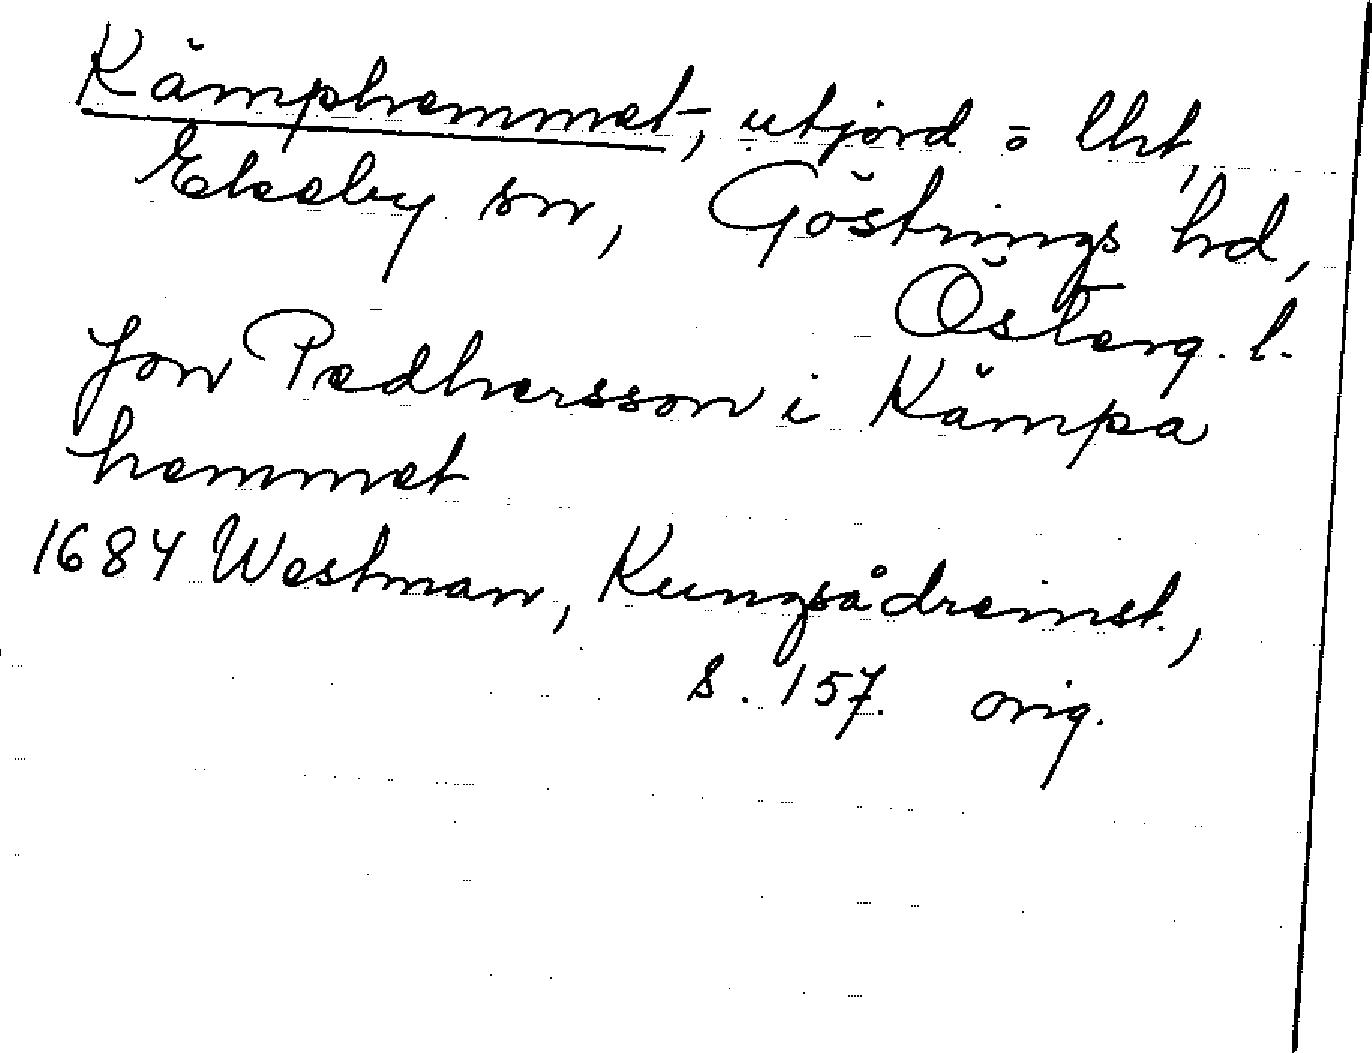 Kämphemmet, utjord o lht,
Ekeby sn, Göstrings hd,
Österg. l.
Jon Pedhersson i Kämpa
hemmet
1684 Westman, Kungsådreinst.,
s. 157. orig.